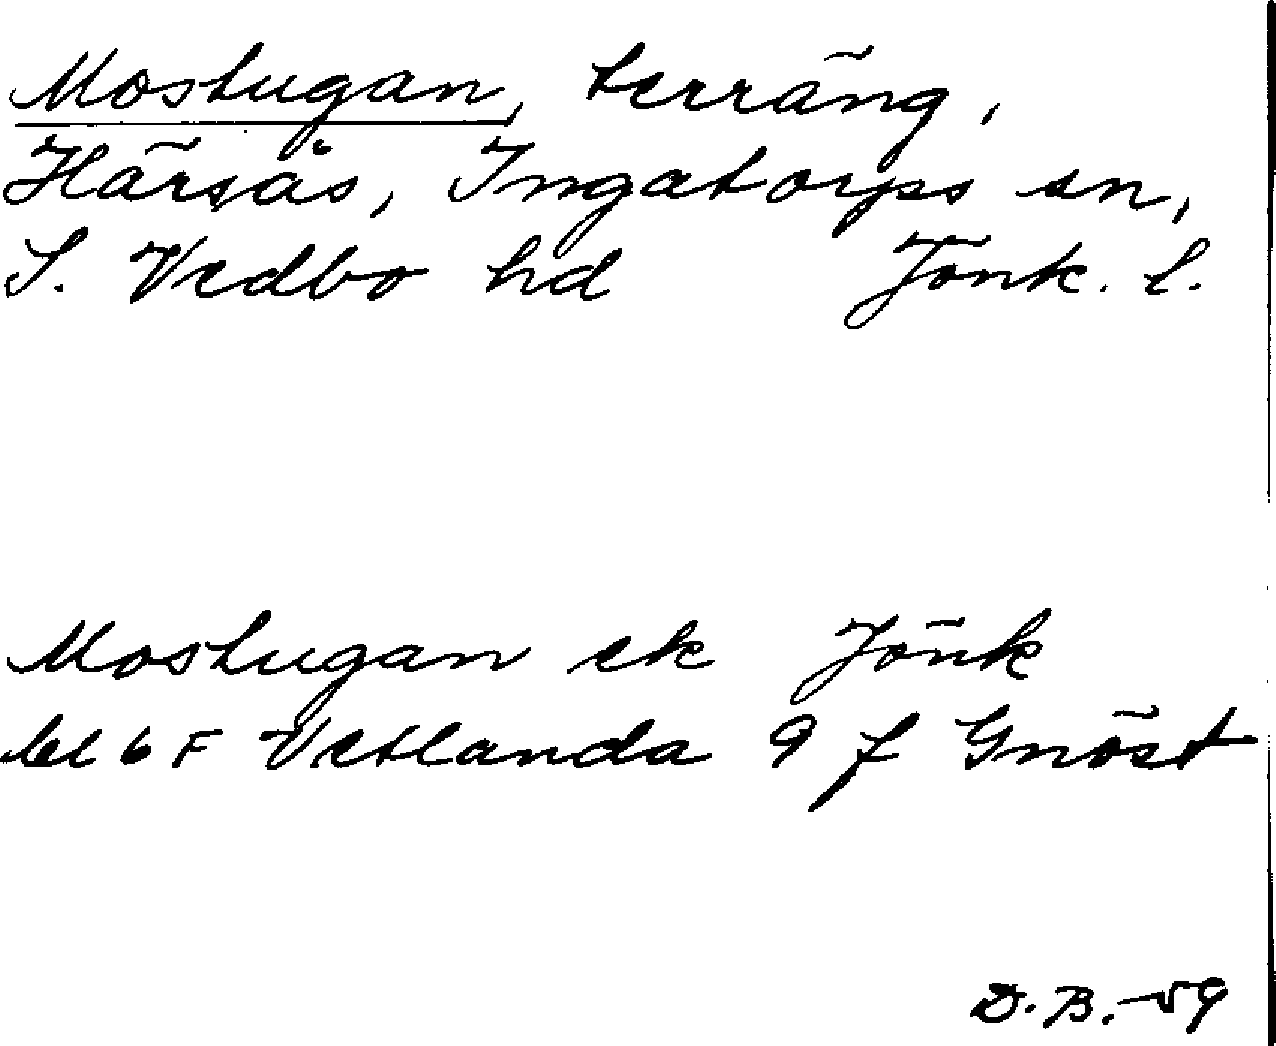 Mostugan, terräng,
Härsås, Ingatorps sn,
S. Vedbo hd Jönk. l.
Mostugan ek Jönk
bl 6 F Vetlanda 9 f Gnöst
D.B.-59